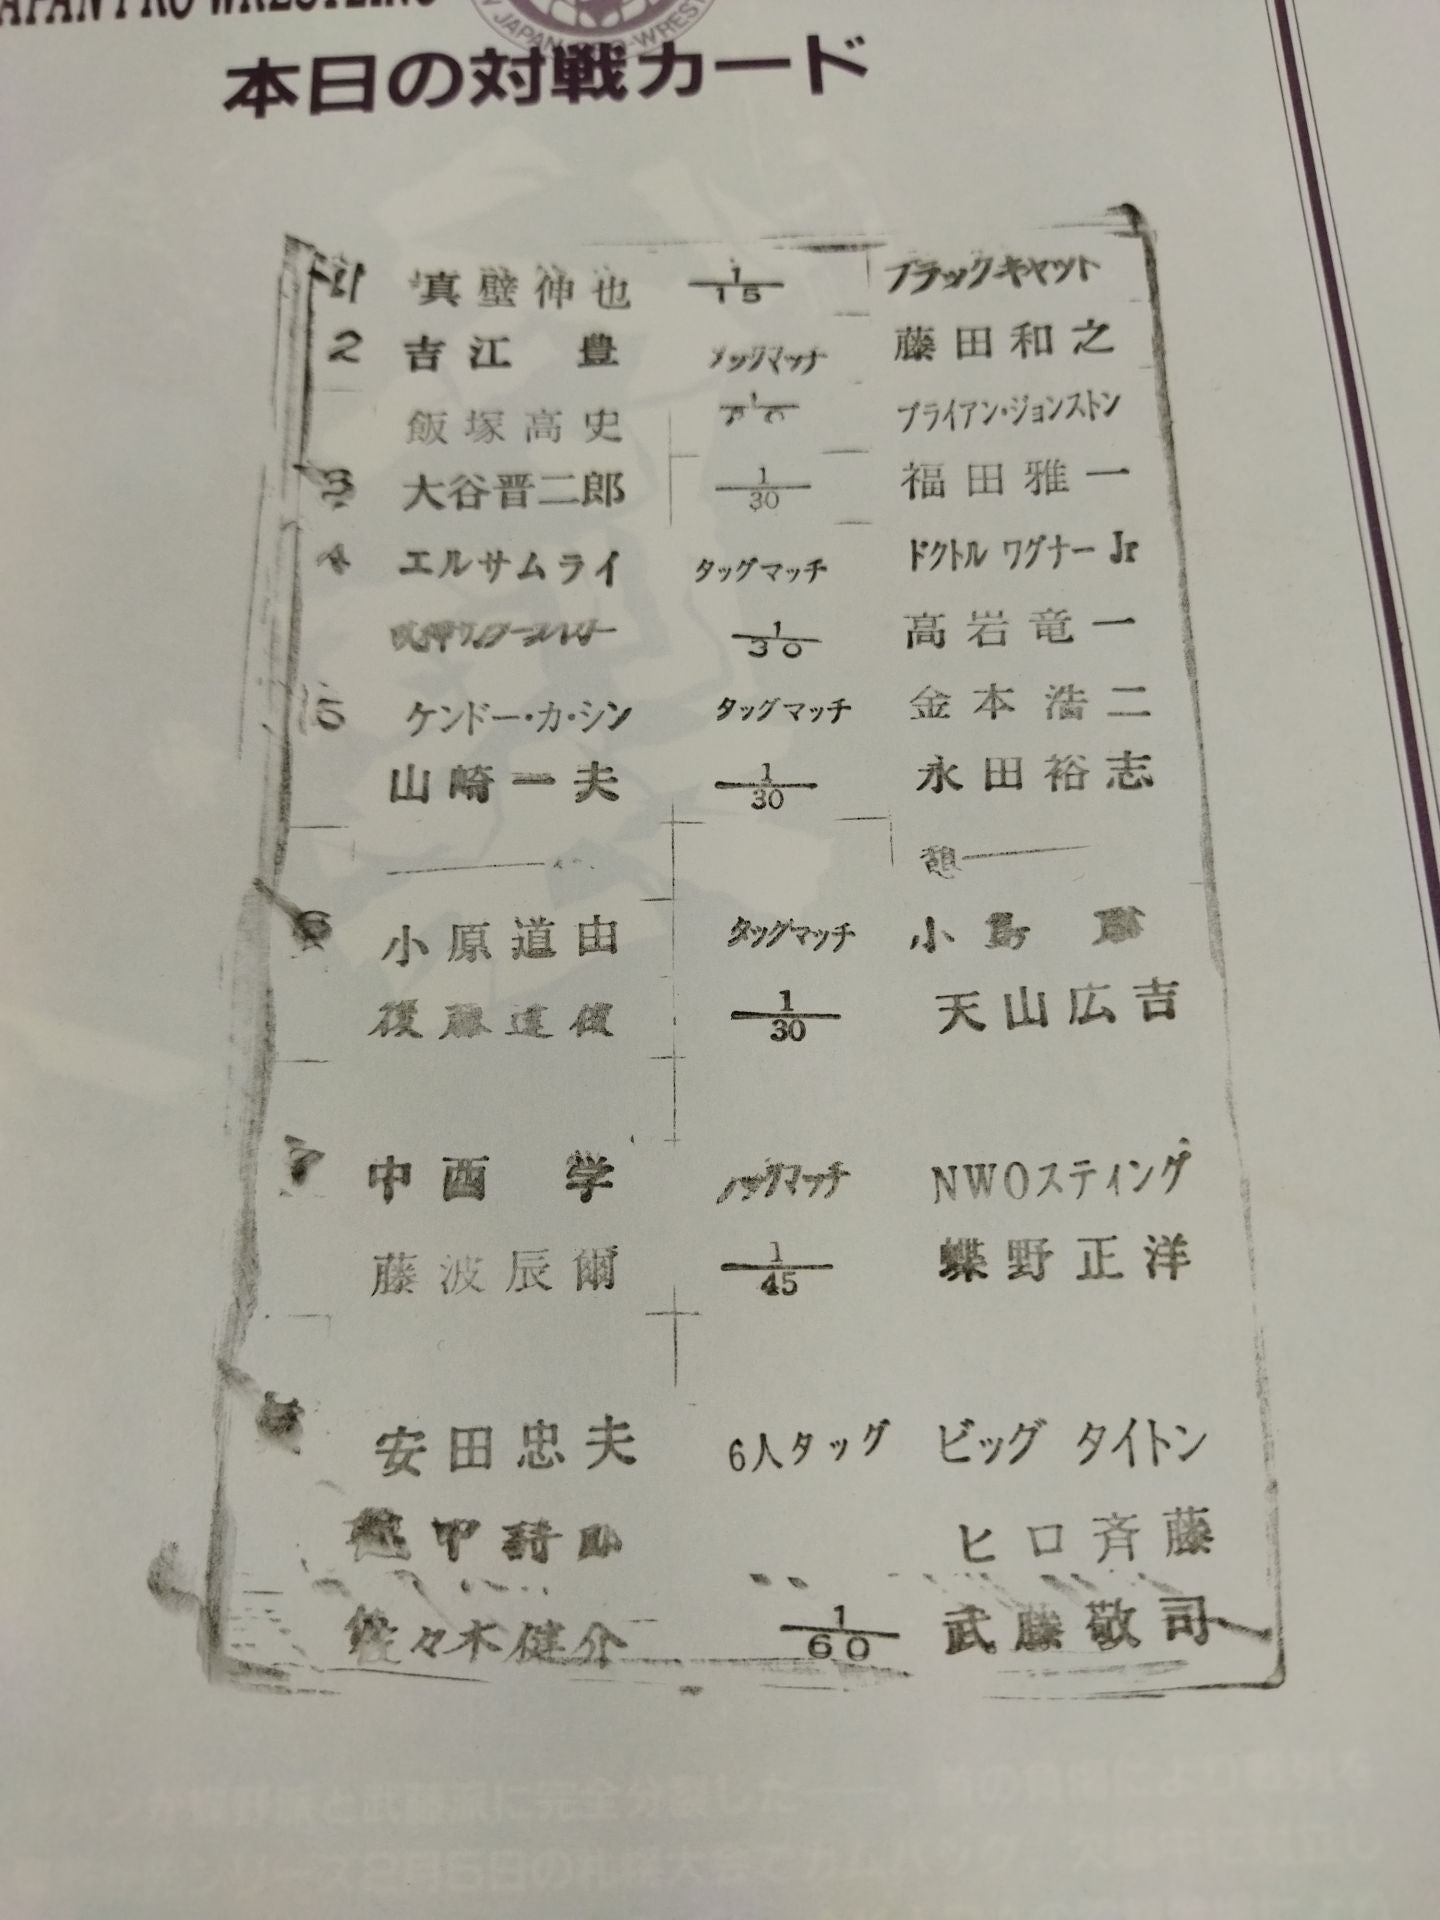 JAPAN PRO WRESTLING
本日の対戦カード
1 真壁伸也 1/15 ブラックキャット
2 吉江 豊 タッグマッチ 藤田和之
飯塚高史 ブライアン・ジョンストン
3 大谷晋二郎 1/30 福田雅一
4 エルサムライ タッグマッチ ドクトル ワグナー Jr
1/30 高岩竜一
5 ケンドー・カ・シン タッグマッチ 金本浩二
山崎一夫 1/30 永田裕志
憩
6 小原道由 タッグマッチ 小島 聡
後藤達俊 1/30 天山広吉
7 中西 学 タッグマッチ NWOスティング
藤波辰爾 1/45 蝶野正洋
安田忠夫 6人タッグ ビッグ タイトン
越中詩郎 ヒロ斉藤
佐々木健介 1/60 武藤敬司